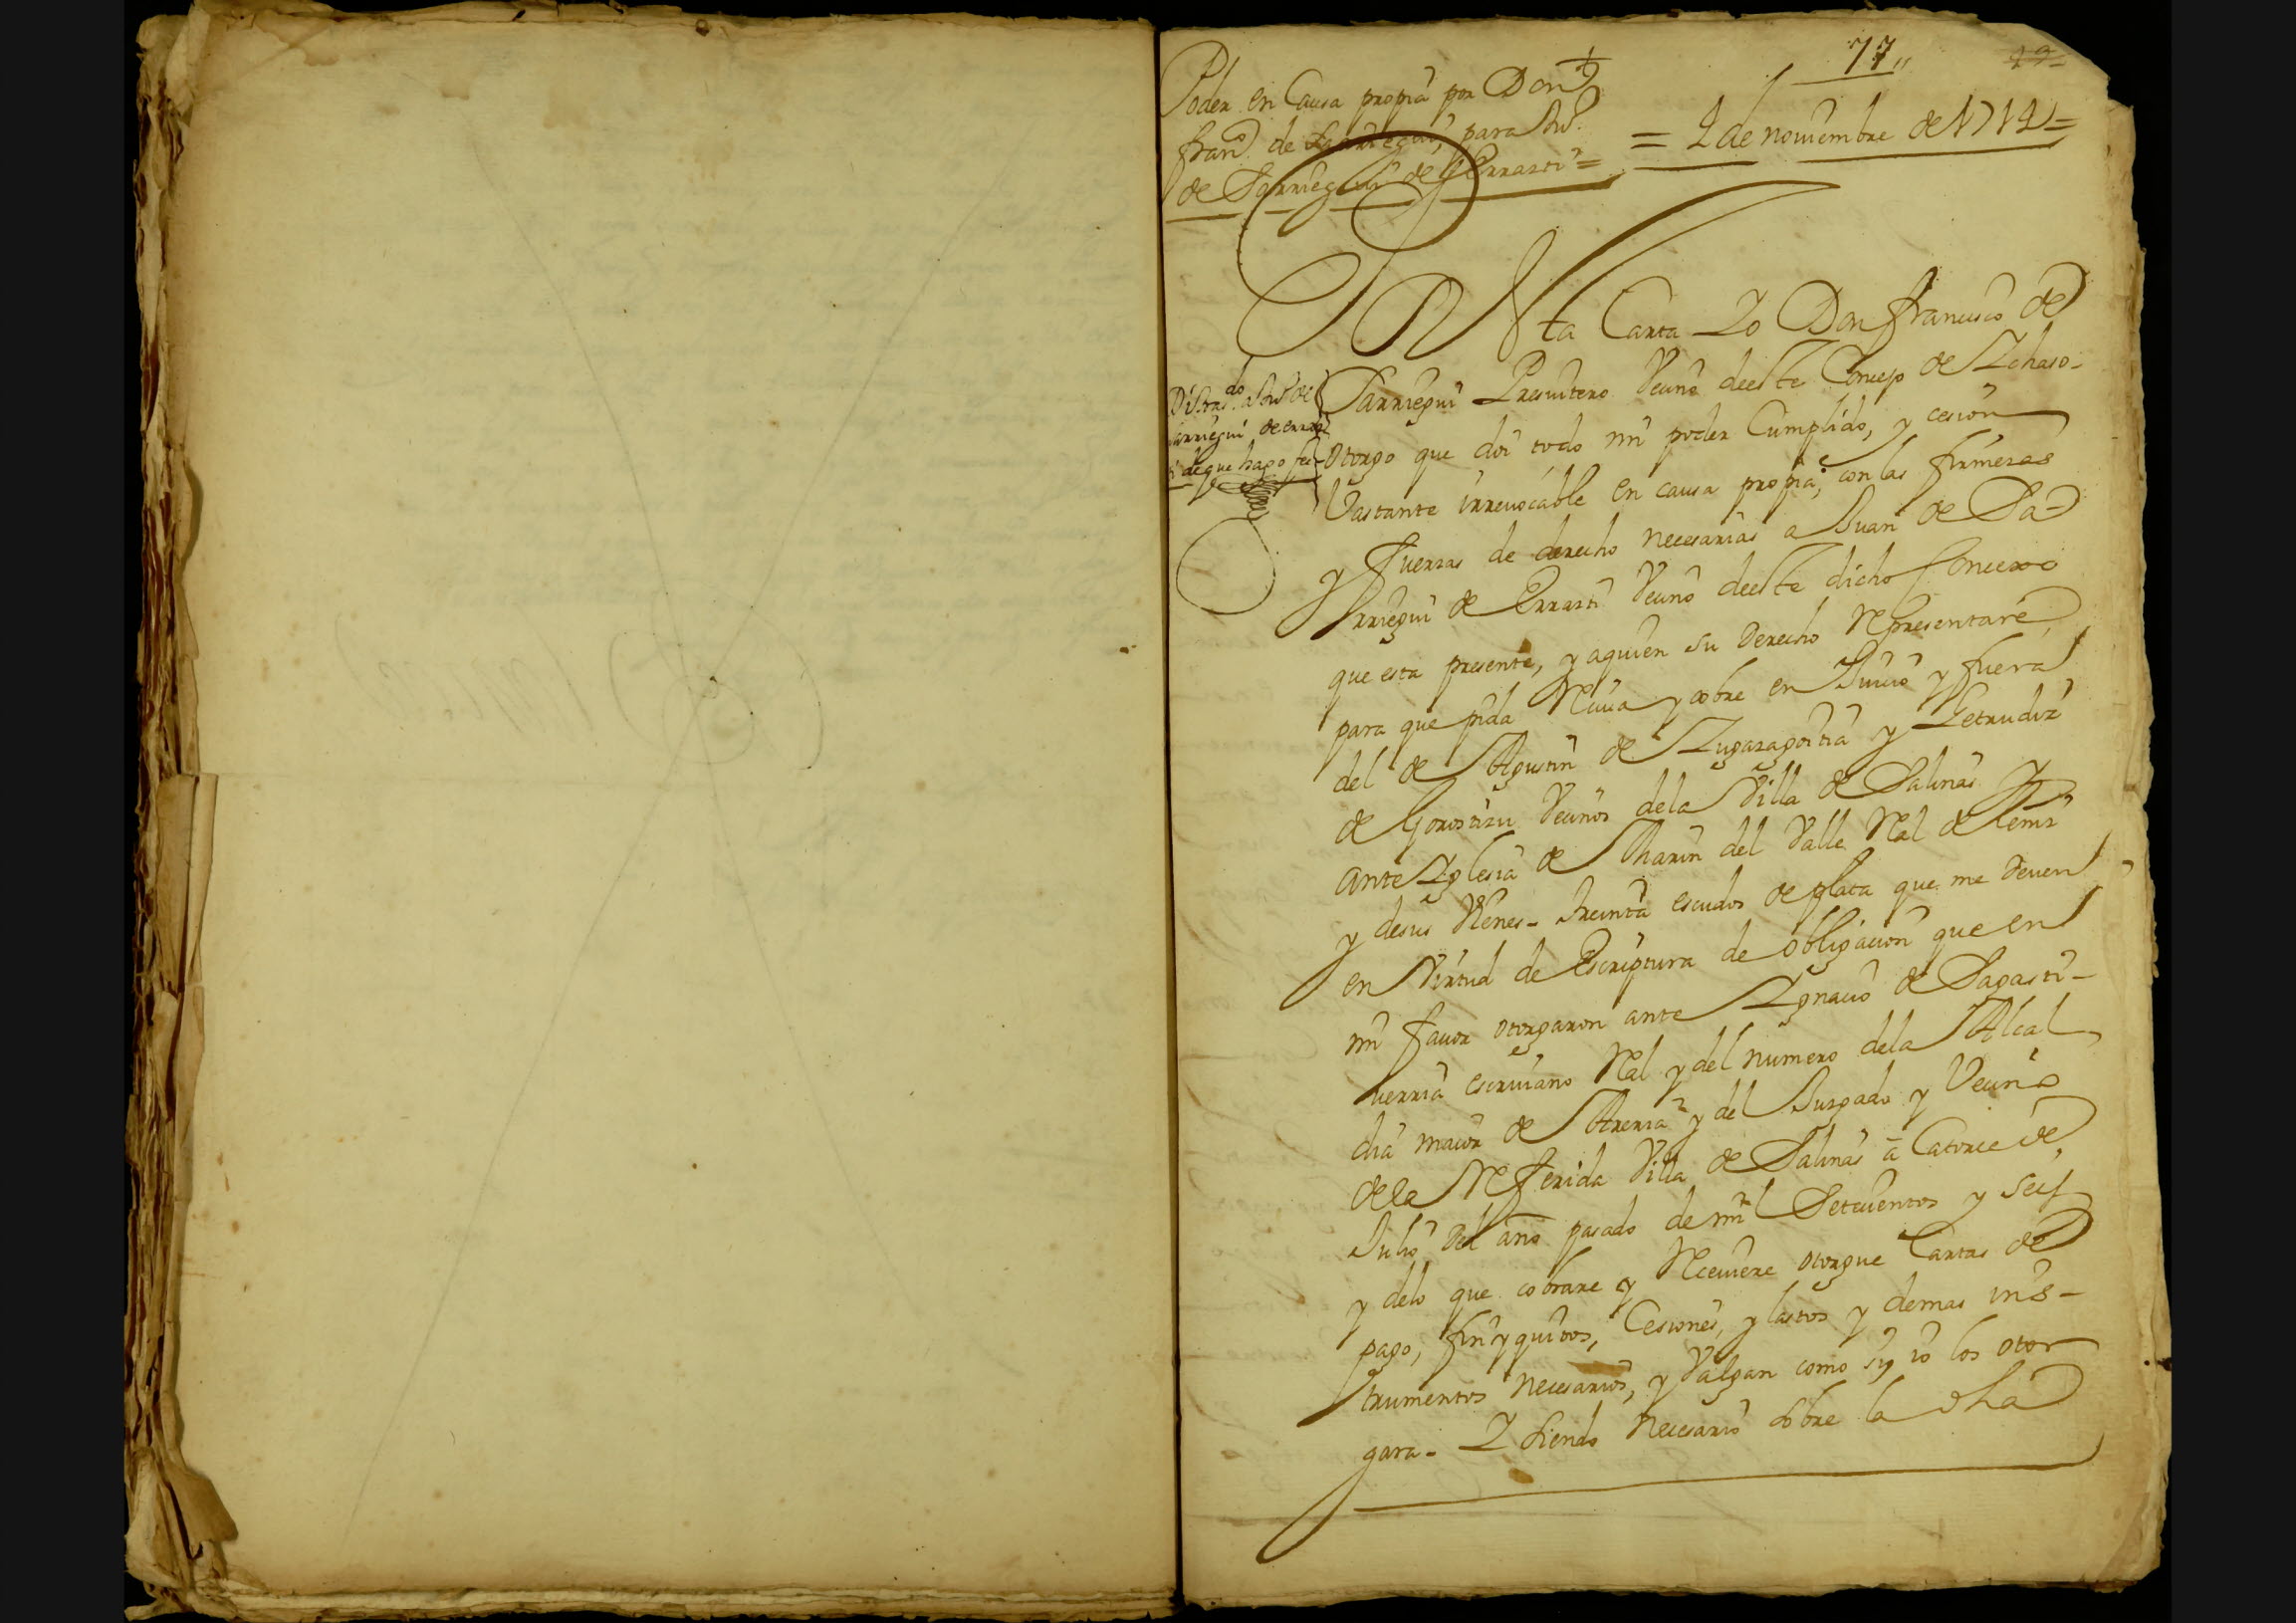 77
19
Poder en Causa propia por Don
Franco de Sarriegui, para Juo
de Sarriegui de Errasti =
= 2 de noviembre de 1714 =
ta Carta Io Don francisco de
Sarriegui Presvitero Vecino deeste Concejo de Ichaso-
otorgo que doi todo mi poder Cumplido, y cesion
Vastante irrevocable en causa propia, con las firmezas
y fuerzas de derecho necesarias a Juan de Sa-
rriegui de Errasti Vecino deeste dicho Concexo
que esta presente, y aquien su derecho Representare,
para que pida Reciva y cobre en Juicio y fuera
del de Agustin de Zugazagoitia y Getrudiz
de Gorostizu Vecinos dela Villa de Salinas
Ante Iglesia de Marin del Valle Real de Leniz
y desus Vienes- treinta escudos de plata que me deven
en Virtud de Escriptura de obligacion que en
mi favor otorgaron ante Ignacio de Sagasti-
verria escrivano Real y del numero dela Alcal
dia maior de Arería y del Juzgado y Vecino
de la Referida Villa de Salinas a Catorce de
Julio del año pasado de mil Setecientos y seis
y delo que cobrare y Receviere otorgue Cartas de
pago, fin y quitos, Cesiones, y lastos y demas ins-
trumentos necesarios, y Valgan como si io los otor
gara- I siendo necesario sobre la dha
Di Tras.do a Juo de
Sarriegui de erras
ti deque hago fee